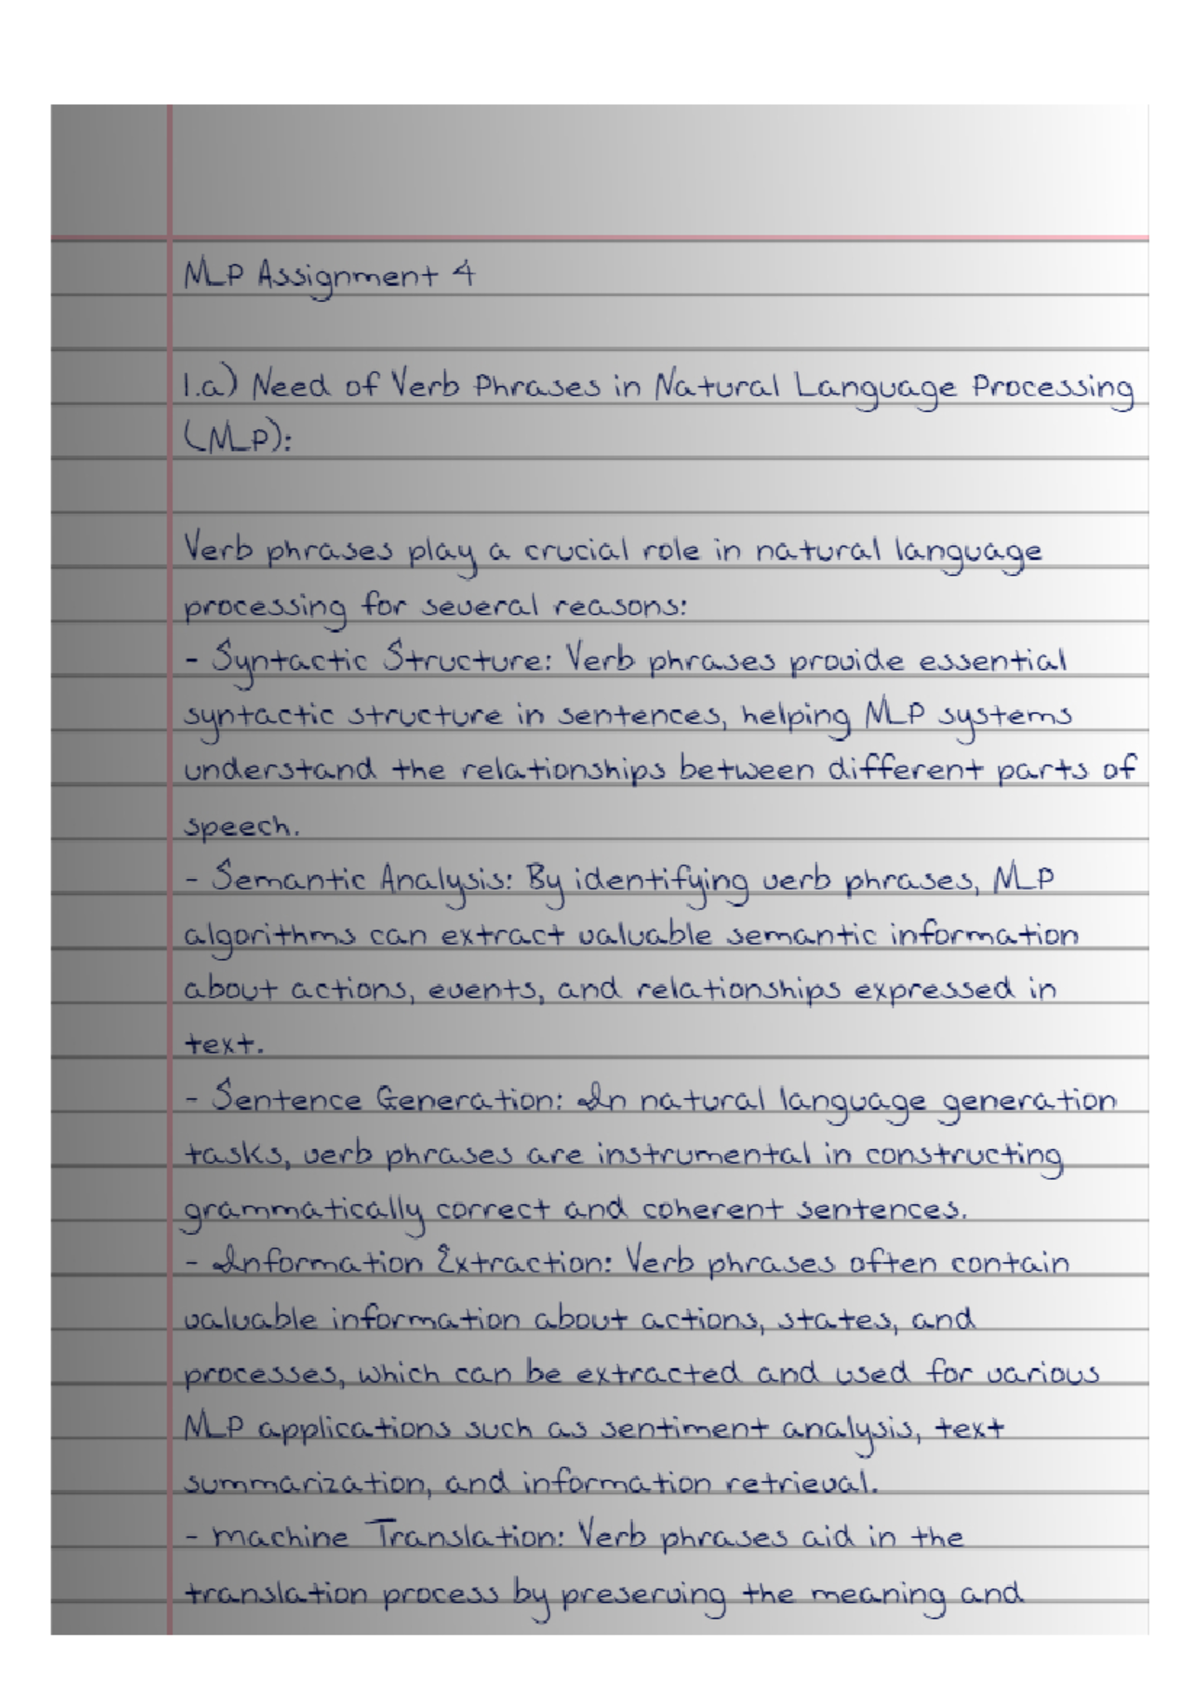 NLP Assignment 4
1.a) Need of Verb Phrases in Natural Language Processing
(NLP):
Verb phrases play a crucial role in natural language
processing for several reasons:
- Syntactic Structure: Verb phrases provide essential
syntactic structure in sentences, helping NLP systems
understand the relationships between different parts of
speech.
- Semantic Analysis: By identifying verb phrases, NLP
algorithms can extract valuable semantic information
about actions, events, and relationships expressed in
text.
- Sentence Generation: In natural language generation
tasks, verb phrases are instrumental in constructing
grammatically correct and coherent sentences.
- Information Extraction: Verb phrases often contain
valuable information about actions, states, and
processes, which can be extracted and used for various
NLP applications such as sentiment analysis, text
summarization, and information retrieval.
- Machine Translation: Verb phrases aid in the
translation process by preserving the meaning and